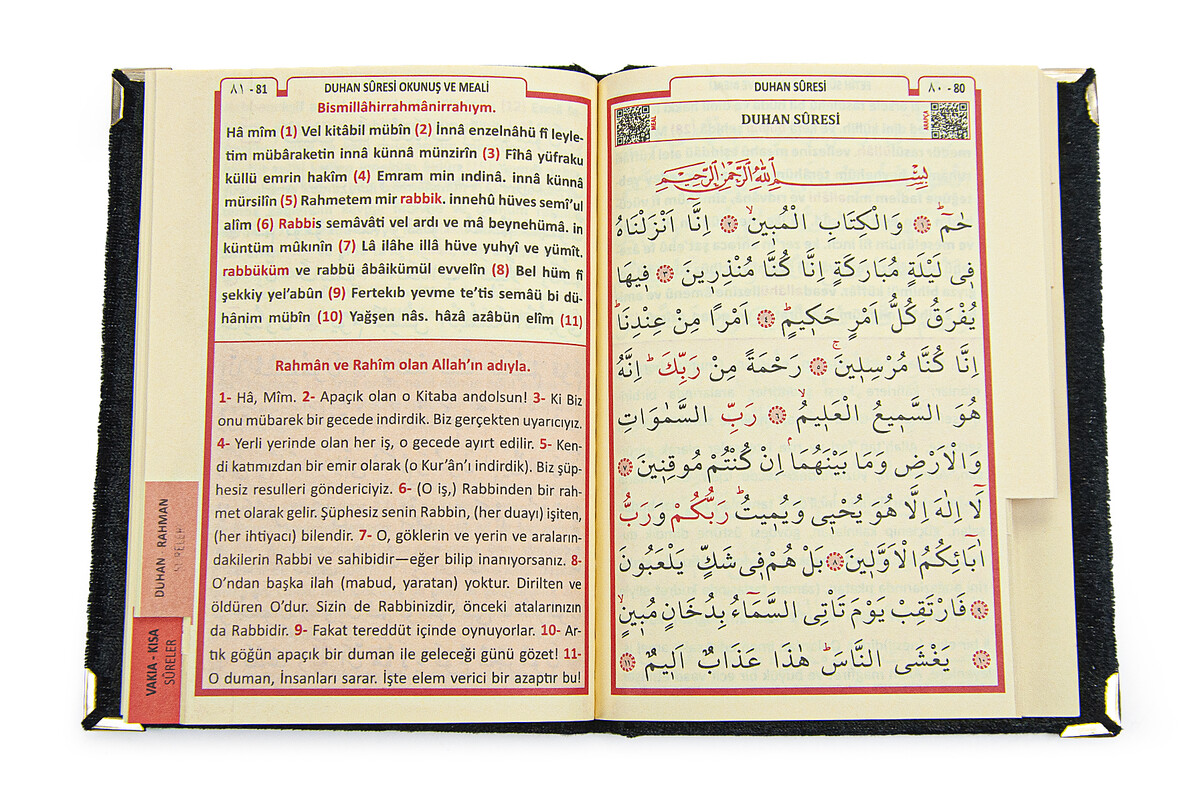 ٨١ - 81
DUHAN SÛRESİ OKUNUŞ VE MEALİ
Bismillâhirrahmânirrahıym.
Hâ mîm (1) Vel kitâbil mübîn (2) İnnâ enzelnâhü fî leyle-
tim mübâraketin innâ künnâ münzirîn (3) Fîhâ yüfraku
küllü emrin hakîm (4) Emram min ındinâ. innâ künnâ
mürsilîn (5) Rahmetem mir rabbik. innehû hüves semî'ul
alîm (6) Rabbis semâvâti vel ardı ve mâ beynehümâ. in
küntüm mûkınîn (7) Lâ ilâhe illâ hüve yuhyî ve yümît.
rabbüküm ve rabbü âbâikümül evvelîn (8) Bel hüm fî
şekkiy yel'abûn (9) Fertekıb yevme te'tis semâü bi dü-
hânim mübîn (10) Yağşen nâs. hâzâ azâbün elîm (11)
Rahmân ve Rahîm olan Allah'ın adıyla.
1- Hâ, Mîm. 2- Apaçık olan o Kitaba andolsun! 3- Ki Biz
onu mübarek bir gecede indirdik. Biz gerçekten uyarıcıyız.
4- Yerli yerinde olan her iş, o gecede ayırt edilir. 5- Ken-
di katımızdan bir emir olarak (o Kur'ân'ı indirdik). Biz şüp-
hesiz resulleri göndericiyiz. 6- (O iş,) Rabbinden bir rah-
met olarak gelir. Şüphesiz senin Rabbin, (her duayı) işiten,
(her ihtiyacı) bilendir. 7- O, göklerin ve yerin ve araların-
dakilerin Rabbi ve sahibidir—eğer bilip inanıyorsanız. 8-
O'ndan başka ilah (mabud, yaratan) yoktur. Dirilten ve
öldüren O'dur. Sizin de Rabbinizdir, önceki atalarınızın
da Rabbidir. 9- Fakat tereddüt içinde oynuyorlar. 10- Ar-
tık göğün apaçık bir duman ile geleceği günü gözet! 11-
O duman, İnsanları sarar. İşte elem verici bir azaptır bu!
DUHAN - RAHMAN
SÛRELER
VAKIA - KISA
SÛRELER
DUHAN SÛRESİ
٨٠ - 80
MEAL
DUHAN SÛRESİ
ARAPÇA
بِسْمِ اللّٰهِ الرَّحْمٰنِ الرَّحِيمِ
حٰمٓ ۜ ﴿١﴾ وَالْكِتَابِ الْمُبِينِ ۙ ﴿٢﴾ اِنَّٓا اَنْزَلْنَاهُ
فِي لَيْلَةٍ مُبَارَكَةٍ اِنَّا كُنَّا مُنْذِرِينَ ﴿٣﴾ فِيهَا
يُفْرَقُ كُلُّ اَمْرٍ حَكِيمٍ ۜ ﴿٤﴾ اَمْرًا مِنْ عِنْدِنَا ۜ
اِنَّا كُنَّا مُرْسِلِينَ ۚ ﴿٥﴾ رَحْمَةً مِنْ رَبِّكَ ۜ اِنَّهُ
هُوَ السَّمِيعُ الْعَلِيمُ ۙ ﴿٦﴾ رَبِّ السَّمٰوَاتِ
وَالْاَرْضِ وَمَا بَيْنَهُمَا ۢ اِنْ كُنْتُمْ مُوقِنِينَ ﴿٧﴾
لَٓا اِلٰهَ اِلَّا هُوَ يُحْيِي وَيُمِيتُ ۜ رَبُّكُمْ وَرَبُّ
اٰبَٓائِكُمُ الْاَوَّلِينَ ﴿٨﴾ بَلْ هُمْ فِي شَكٍّ يَلْعَبُونَ
﴿٩﴾ فَارْتَقِبْ يَوْمَ تَاْتِي السَّمَٓاءُ بِدُخَانٍ مُبِينٍ ۙ
﴿١٠﴾ يَغْشَى النَّاسَ ۜ هٰذَا عَذَابٌ اَلِيمٌ ﴿١١﴾